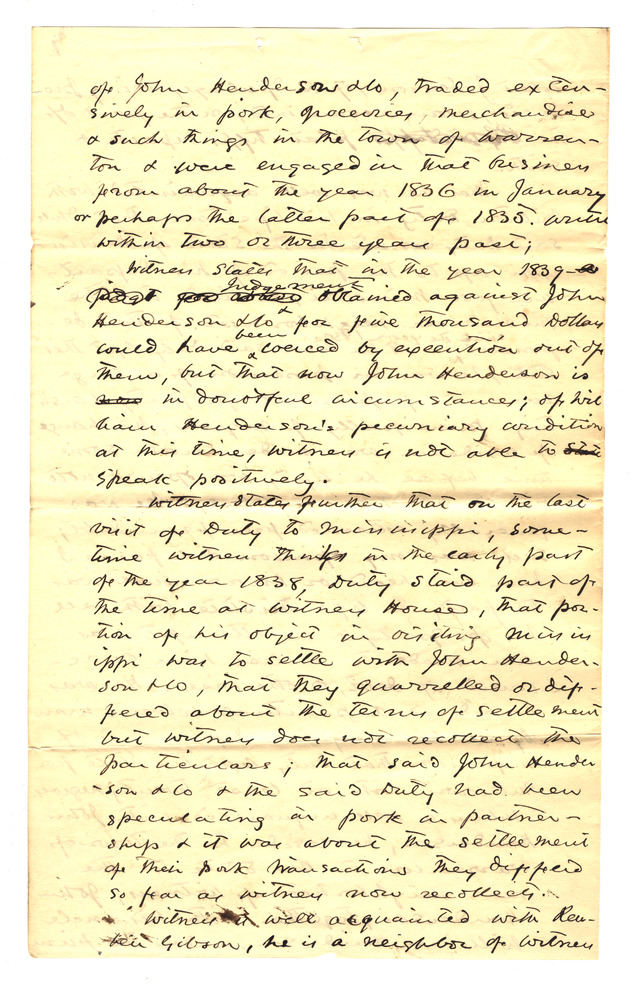 of John Henderson & Co, traded exten-
sively in pork, groceries, merchandise
& such things in the town of Warren-
ton & were engaged in that business
from about the year 1836 in January
or perhaps the latter part of 1835. until
within two or three years past;
Witness States that in the year 1839 a
Judgement obtained against John
Henderson & Co for five thousand Dollars
could have been coerced by execution out of
them, but that now John Henderson is
now in doubtful circumstances; of Wil
liam Henderson's pecuniary condition
at this time, witness is not able to State
Speak positively.
Witness States further that on the last
visit of Duty to Mississippi, some-
time witness thinks in the early part
of the year 1838, Duty staid part of
the time at witness House, that por-
tion of his object in visiting Missis
ippi was to settle with John Hender-
son & Co, that they quarrelled or dif-
fered about the terms of settlement
but witness does not recollect the
particulars; that said John Hender
-son & Co & the said Duty had been
speculating in pork in partner-
ship & it was about the settlement
of their Pork transactions they differed
so far as witness now recollects.
Witness is well acquainted with Reu-
ben Gibson, he is a neighbor of witness